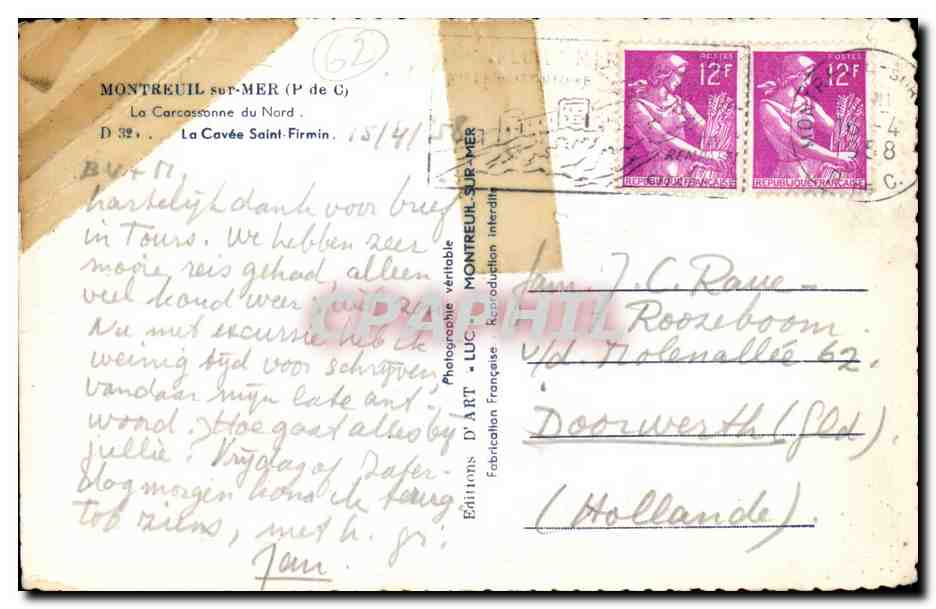 62
MONTREUIL sur-MER (P de C)
La Carcassonne du Nord .
D 32 . La Cavée Saint-Firmin .
15/4/58
B V + M,
hartelijk dank voor brief
in Tours. We hebben zeer
mooie reis gehad, alleen
veel koud weer
Nu met excursie heb ik
weinig tijd voor schrijven,
vandaar mijn late ant-
woord. Hoe gaat alles bij
jullie? Vrijdag of Zater-
dagmorgen kom ik terug.
Tot ziens, met h. gr.
Jan.
Editions D'ART • LUC • MONTREUIL-SUR-MER
Photographie véritable
Fabrication Française Reproduction interdite
POSTES
12F
REPUBLIQUE FRANÇAISE
POSTES
12F
REPUBLIQUE FRANÇAISE
Fam. J. C. Raue-
Roozeboom.
v/d. Molenallée 62.
Doorwerth (Gld).
(Hollande).
CPAPHIL